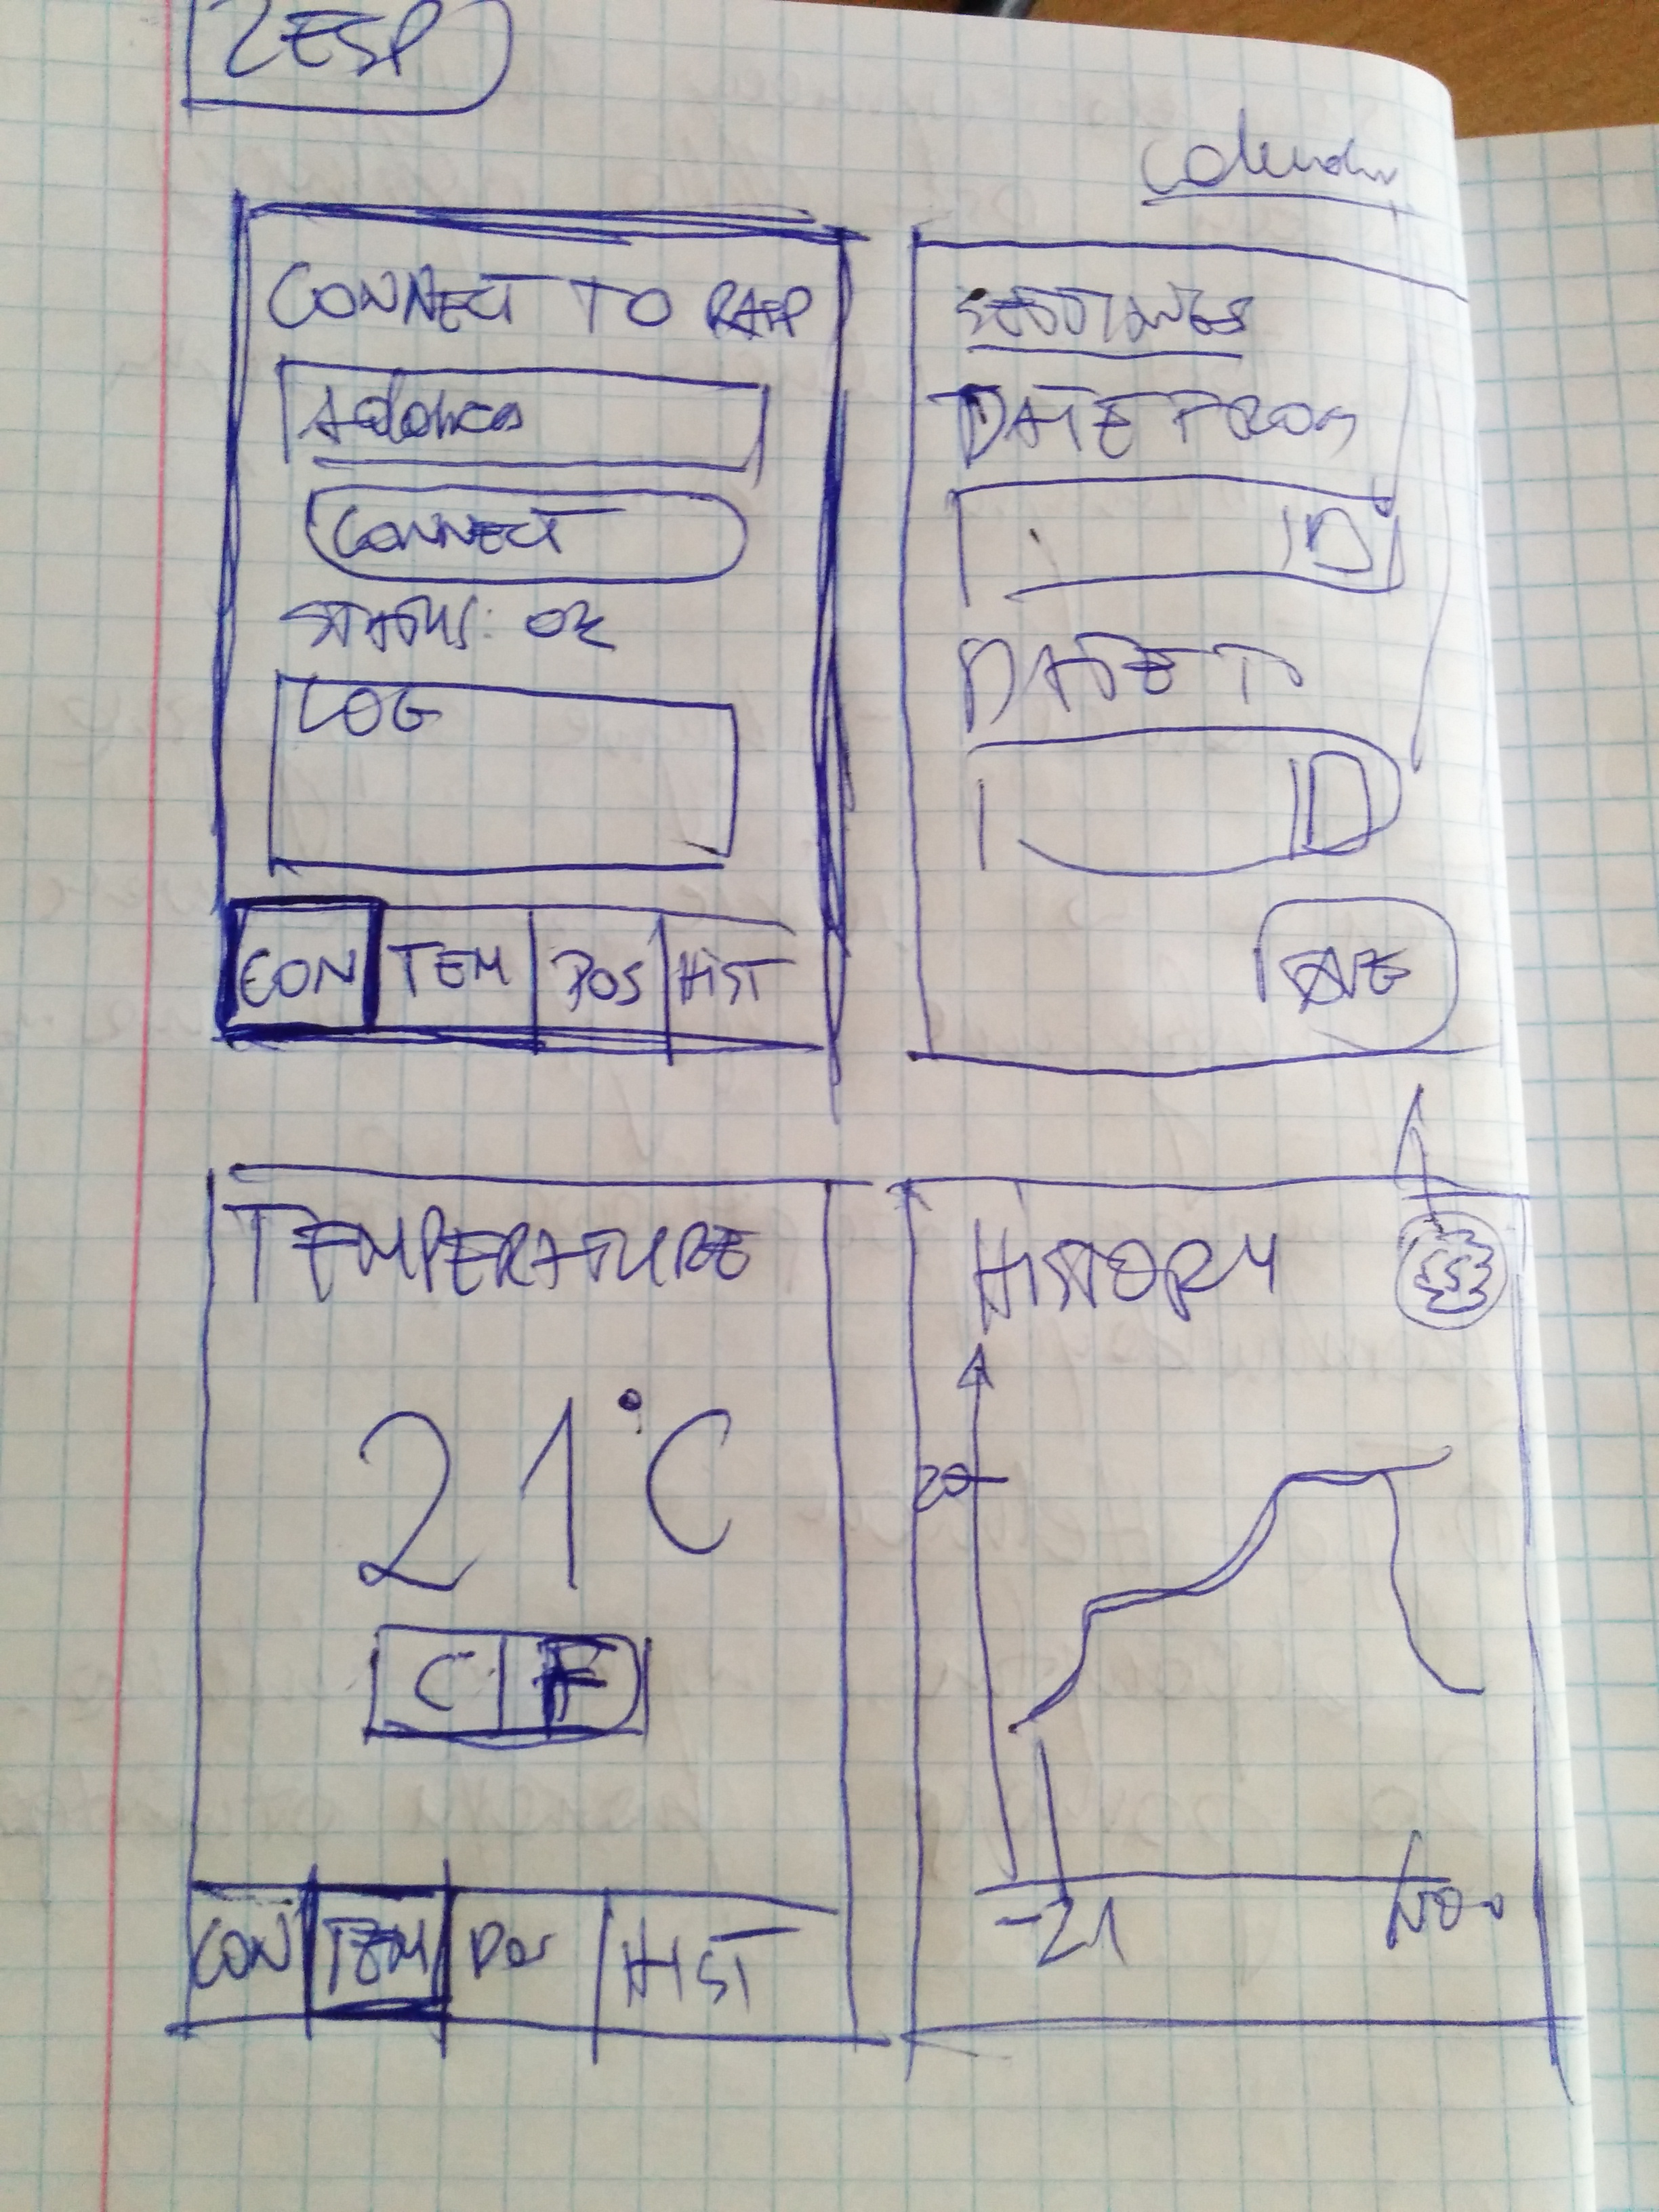 ZESP
calendar
CONNECT TO RASP
Address
CONNECT
STATUS: OK
LOG
CON TEM POS HIST
SETTINGS
DATE FROM
DATE TO
SAVE
TEMPERATURE
21°C
C F
CON TEM POS HIST
HISTORY
20
-21